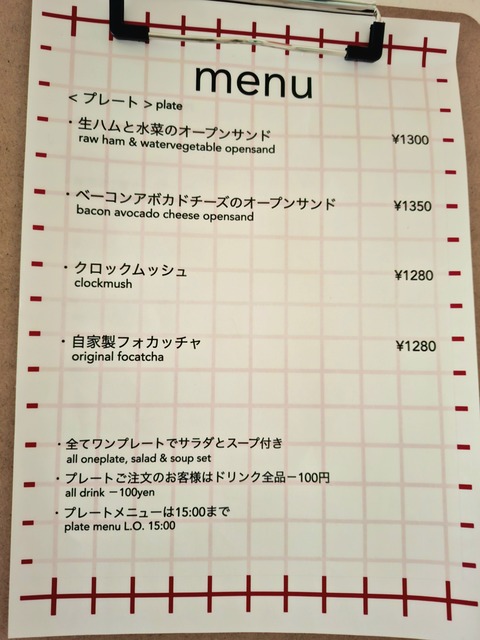 menu
< プレート > plate
・生ハムと水菜のオープンサンド ¥1300
raw ham & watervegetable opensand
・ベーコンアボカドチーズのオープンサンド ¥1350
bacon avocado cheese opensand
・クロックムッシュ ¥1280
clockmush
・自家製フォカッチャ ¥1280
original focatcha
・全てワンプレートでサラダとスープ付き
all oneplate, salad & soup set
・プレートご注文のお客様はドリンク全品－100円
all drink －100yen
・プレートメニューは15:00まで
plate menu L.O. 15:00